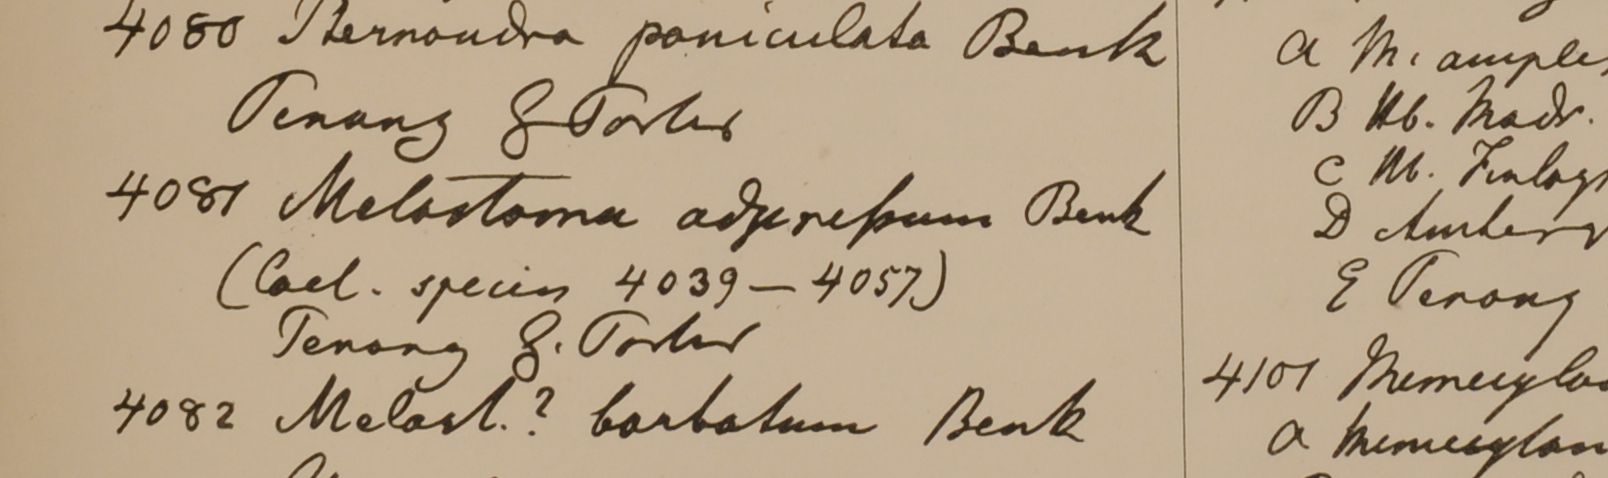 4080 Bernoudra paniculata Benth
Penang G. Porter
4081 Melastoma adpressum Benth
(Cael. species 4039 — 4057)
Penang G. Porter
4082 Melast.? barbatum Benth
a M. amplex
B Hb. Madr.
C Hb. Finlays
D Amherst
E Penang
4101 Memecylon
a Memecylon